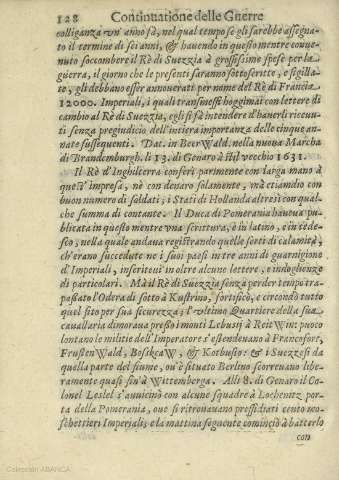 128 Continuatione delle Guerre
colliganza un' anno sà, nel qual tempo se gli sarebbe assegna-
to il termine di sei anni, & hauendo in questo mentre conue-
nuto soccombere il Rè di Suezzia à grossissime spese per la
guerra, il giorno che le presenti saranno sottoscritte, e sigilla-
te, gli debbano esser annouerati per nome del Rè di Francia
12000. Imperiali, i quali transmesse hoggimai con lettere di
cambio al Rè di Suezzia, egli si fà intendere d'hauerli riceuu-
ti senza pregiudicio dell'intiera importanza delle cinque an-
nate sussequenti. Dat. in BeerWald. nella nuoua Marcha
di Brandemburgh. li 13. di Genaro à stil vecchio 1631.
Il Rè d'Inghilterra conferì parimente con larga mano à
quest'impresa, nè con denaro solamente, mà etiamdio con
buon numero di soldati; i Stati di Hollanda altresì con qual-
che summa di contante. Il Duca di Pomerania haueua pu-
blicata in questo mentre vna scrittura, e in latino, e in tede-
sco, nella quale andaua registrando quelle sorti di calamità,
ch'erano succedute ne i suoi paesi in tre anni di guarnigione
d'Imperiali, inseriteui in oltre alcune lettere, e indoglienze
di particolari. Mà il Rè di Suezzia senza perder tempo tra-
passato l'Odera di sotto à Kustrino, fortificò, e circondò tutto
quel sito per sua sicurezza; l'vltimo Quartiere della sua
cauallaria dimoraua presso i monti Lebusij à ReitWin: puoco
lontano le militie dell'Imperatore s'estendeuano à Francofort,
FrustenWald, BosikaW, & Kotbusio: & i Suezzesi da
quella parte del fiume, ou' è situato Berlino scorreuano libe-
ramente quasi sin' à Wittemberga. Alli 8. di Genaro il Co-
lonel Leslel s'auuicinò con alcune squadre à Lochentz por-
ta della Pomerania, oue si ritrouauano pressidiati cento mo-
schettieri Imperiali, e la mattina seguente cominciò à batterlo
con
Colección ABANCA